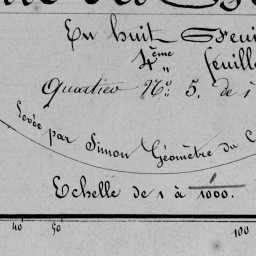 En huit Feui
4ème feuille
Quartier No. 5. de 1
Levée par Simon Géomètre du C
Echelle de 1 à 1000.
40 50 100